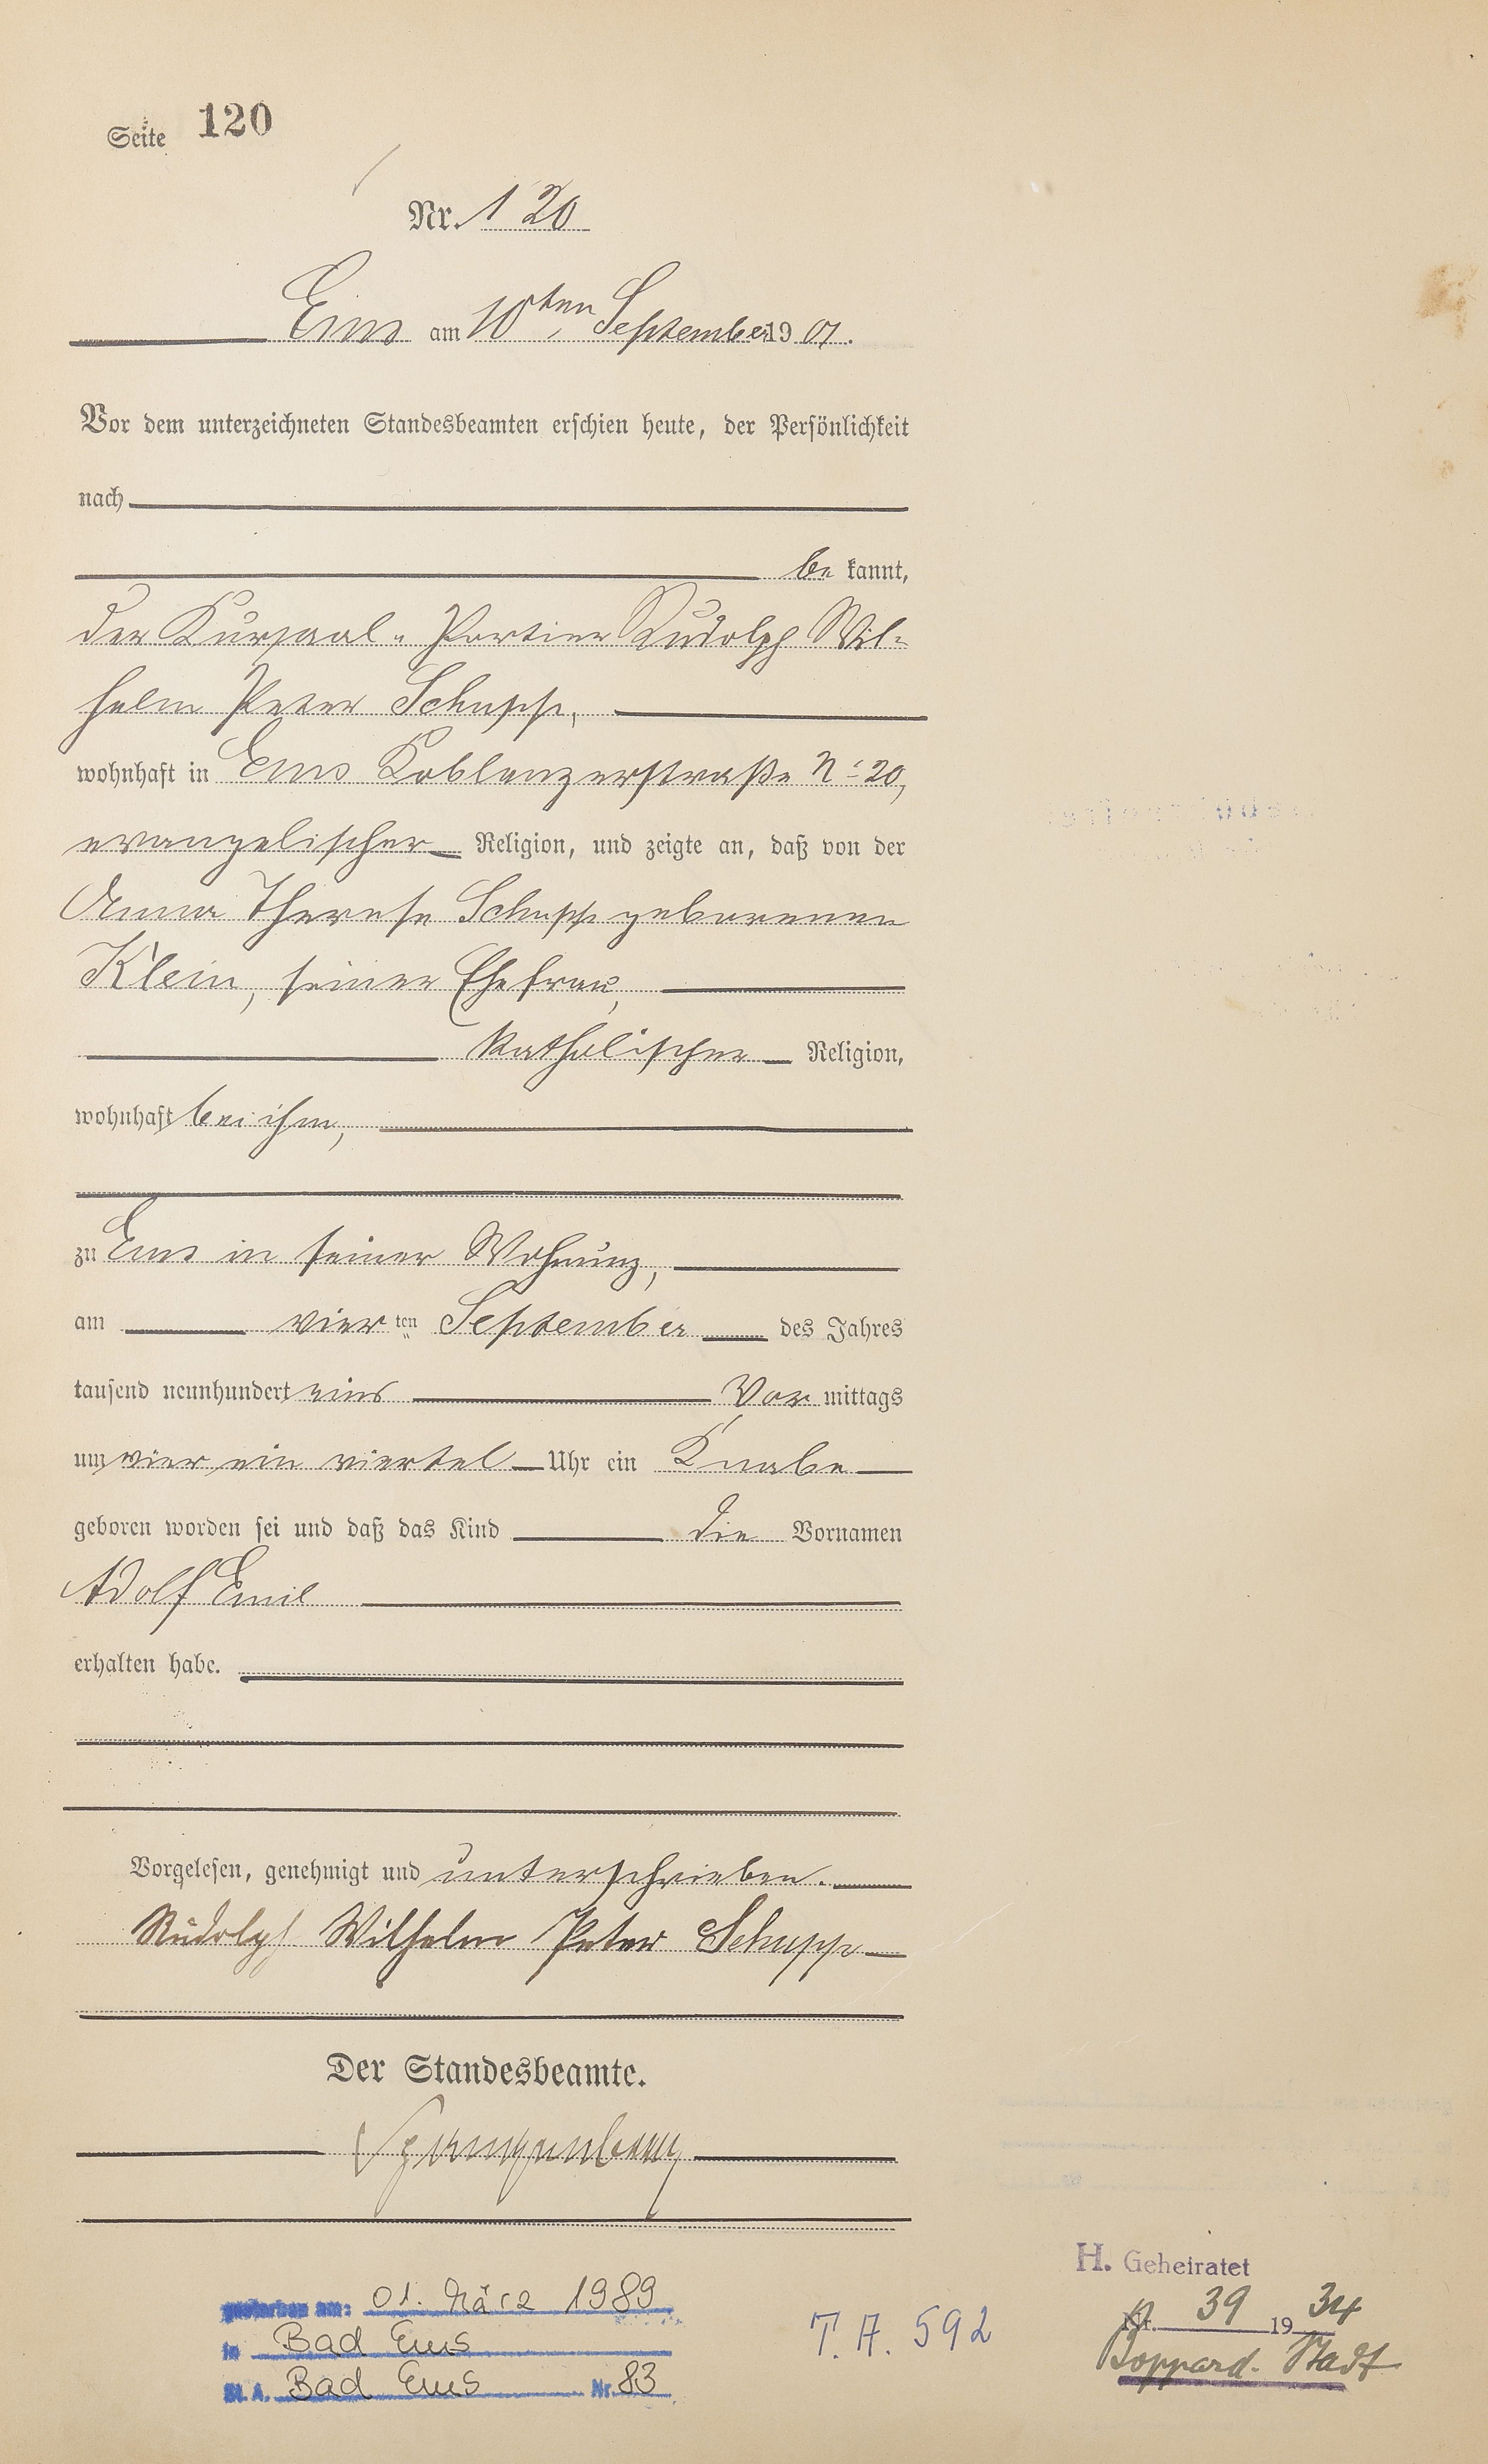 Seite 120
Nr. 120
Ems am 10ten September 1901.
Vor dem unterzeichneten Standesbeamten erschien heute, der Persönlichkeit
nach
be kannt,
der Kursaal-Portier Rudolph Wil-
helm Peter Schupp,
wohnhaft in Ems Koblenzerstraße No 20,
evangelischer Religion, und zeigte an, daß von der
Anna Therese Schupp geborenen
Klein, seiner Ehefrau,
katholischer Religion,
wohnhaft bei ihm,
zu Ems in seiner Wohnung,
am vier ten September des Jahres
tausend neunhundert eins Vor mittags
um vier ein viertel Uhr ein Knabe
geboren worden sei und daß das Kind die Vornamen
Adolf Emil
erhalten habe.
Vorgelesen, genehmigt und unterschrieben.
Rudolph Wilhelm Peter Schupp
Der Standesbeamte.
H. Geheiratet
Nr. 39 1934
Boppard-Stadt
gestorben am: 01. März 1989
in Bad Ems
St. A. Bad Ems Nr. 83
T. A. 592